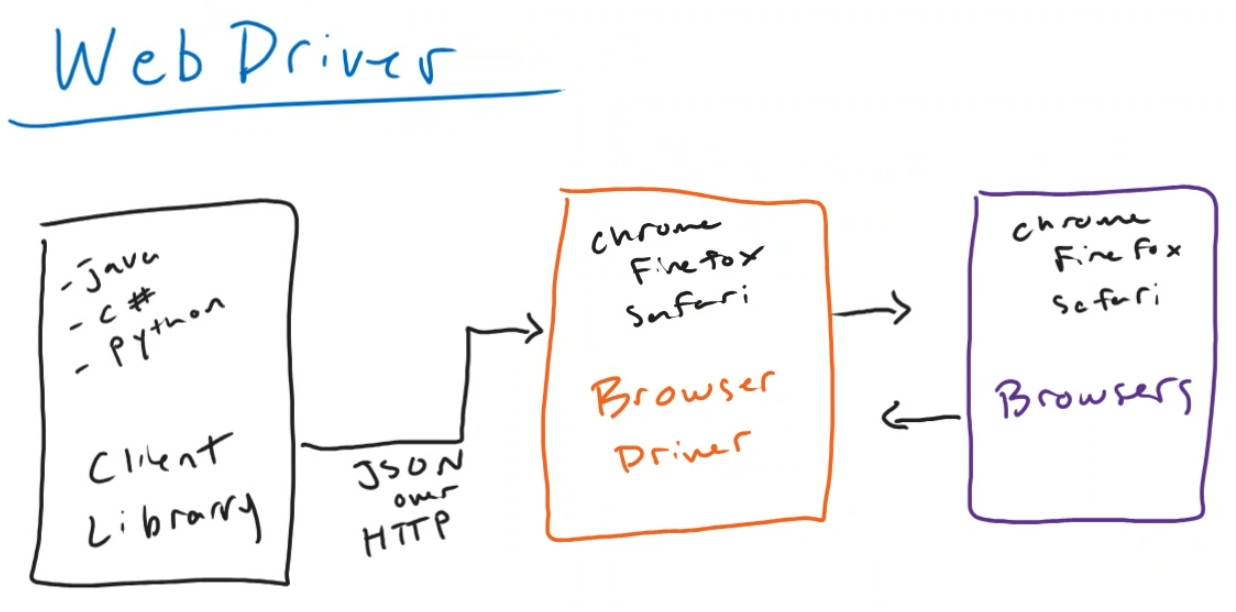 WebDriver
- Java
- C#
- Python
Client
Library
JSON
over
HTTP
chrome
Firefox
Safari
Browser
Driver
chrome
Firefox
Safari
Browsers